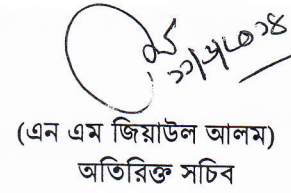 (এন এম জিয়াউল আলম)
অতিরিক্ত সচিব